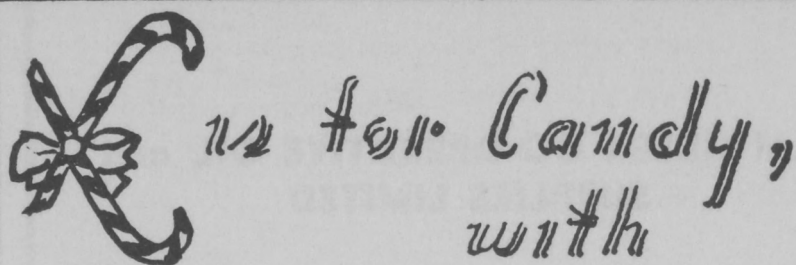 C is for Candy,
with